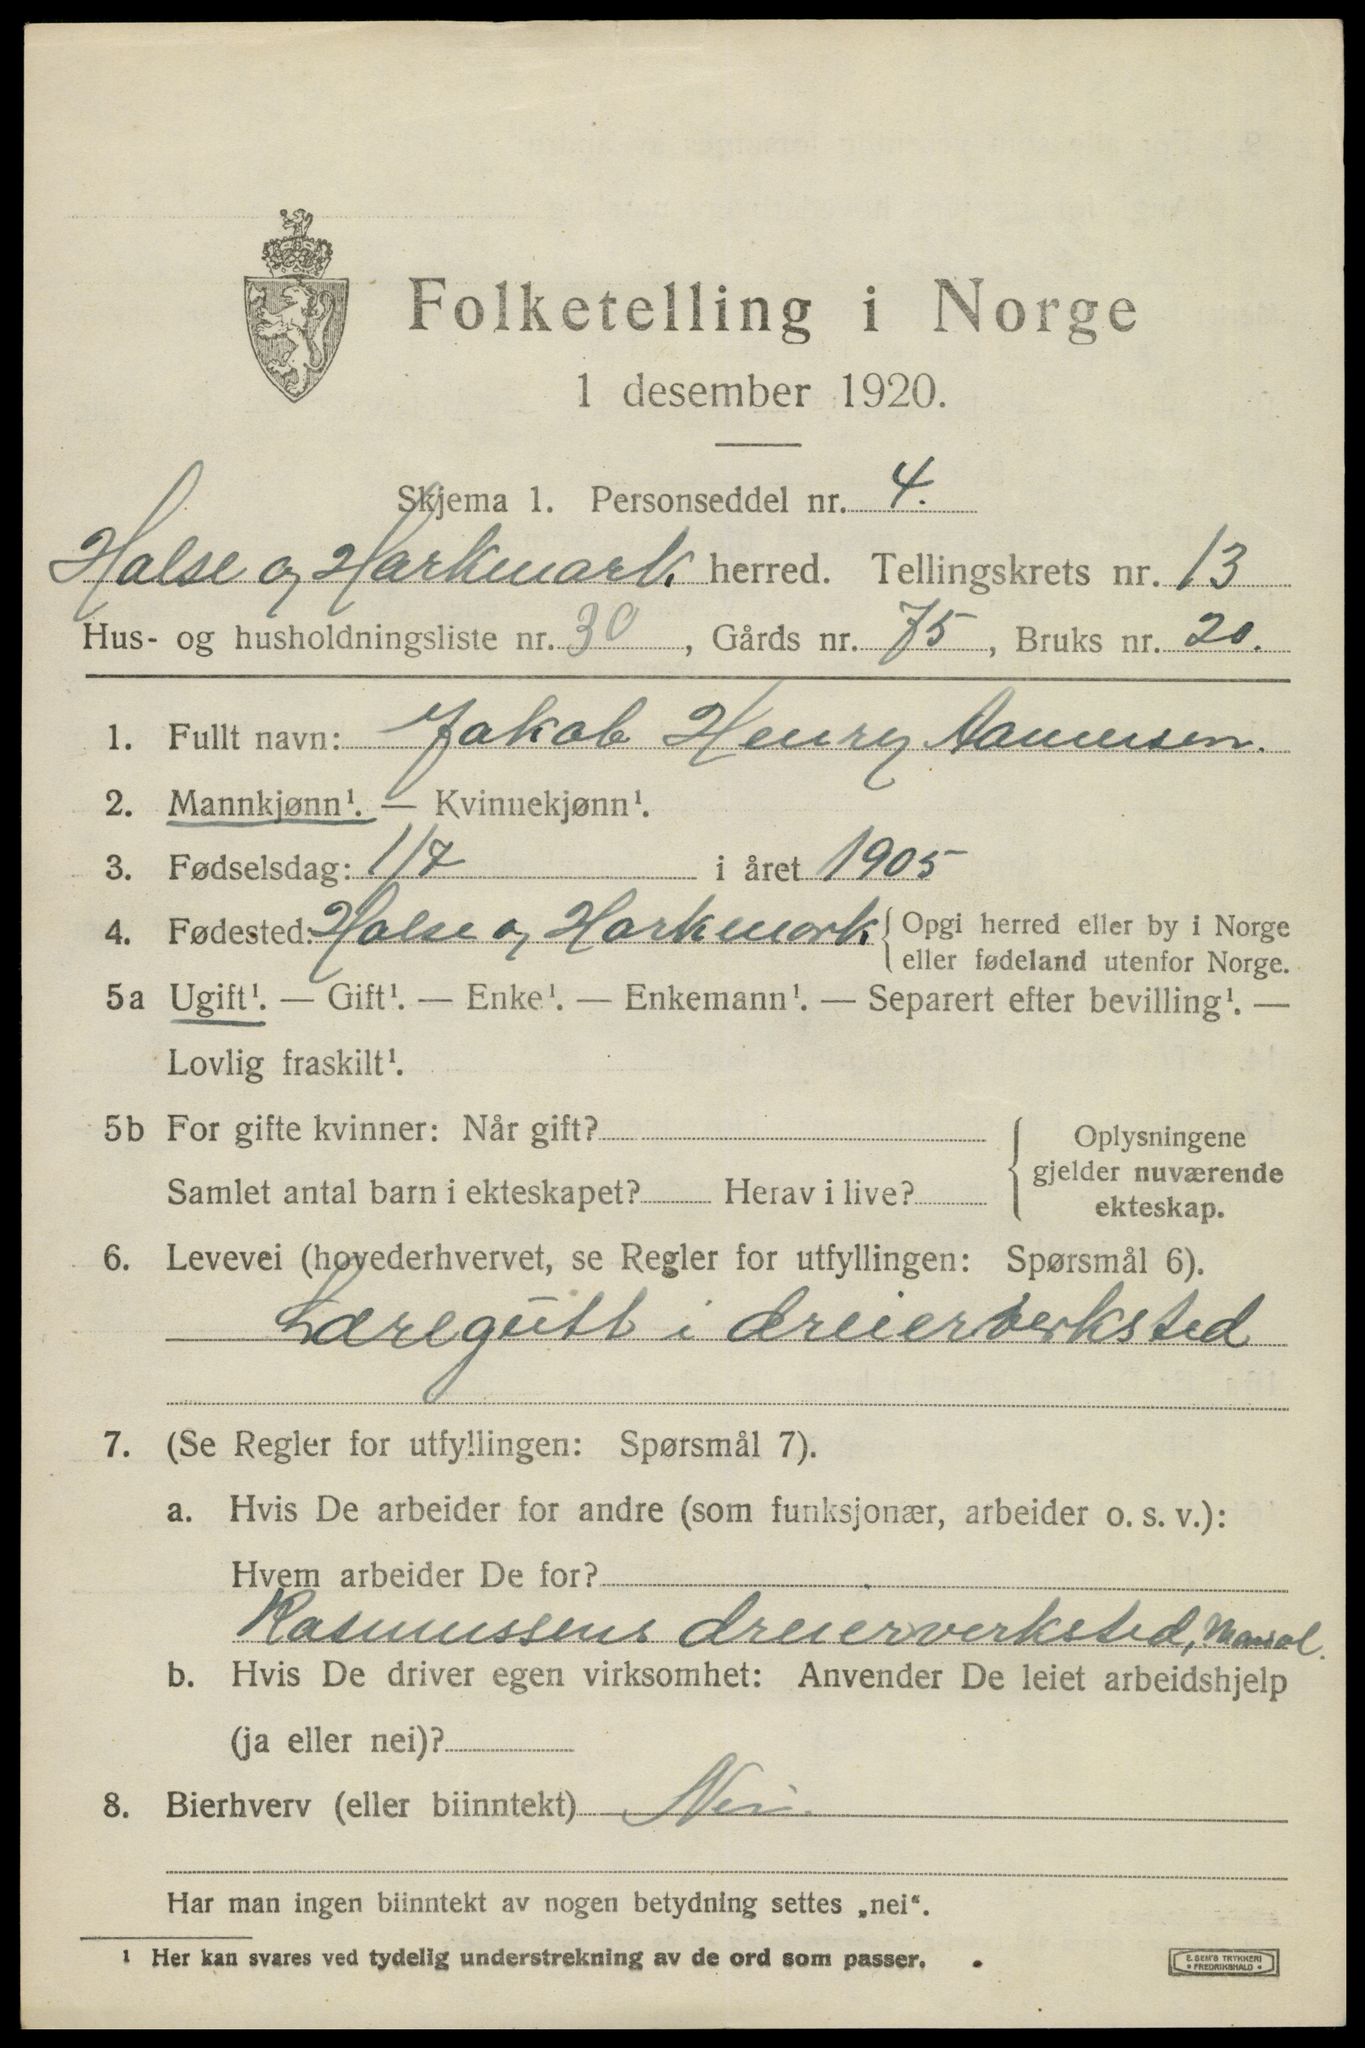 Folketelling i Norge
1 desember 1920.
Skjema 1. Personseddel nr. 4.
Halse og Harkmark herred. Tellingskrets nr. 13
Hus- og husholdningsliste nr. 30, Gårds nr. 75, Bruks nr. 20.
1. Fullt navn: Jakob Henry
2. Mannkjønn¹. — Kvinnekjønn¹.
3. Fødselsdag: 1/7 i året 1905
4. Fødested: Halse og Harkmark { Opgi herred eller by i Norge
eller fødeland utenfor Norge.
5a Ugift¹. — Gift¹. — Enke¹. — Enkemann¹. — Separert efter bevilling¹. —
Lovlig fraskilt¹.
5b For gifte kvinner: Når gift?
Samlet antal barn i ekteskapet? Herav i live?
{ Oplysningene
gjelder nuværende
ekteskap.
6. Levevei (hovederhvervet, se Regler for utfyllingen: Spørsmål 6).
Læregutt i dreierverksted
7. (Se Regler for utfyllingen: Spørsmål 7).
a. Hvis De arbeider for andre (som funksjonær, arbeider o. s. v.):
Hvem arbeider De for?
Rasmussens dreierverksted,
b. Hvis De driver egen virksomhet: Anvender De leiet arbeidshjelp
(ja eller nei)?
8. Bierhverv (eller biinntekt) Nei.
Har man ingen biinntekt av nogen betydning settes „nei“.
¹ Her kan svares ved tydelig understrekning av de ord som passer.
E. SEM'S TRYKKERI
• FREDRIKSHALD •